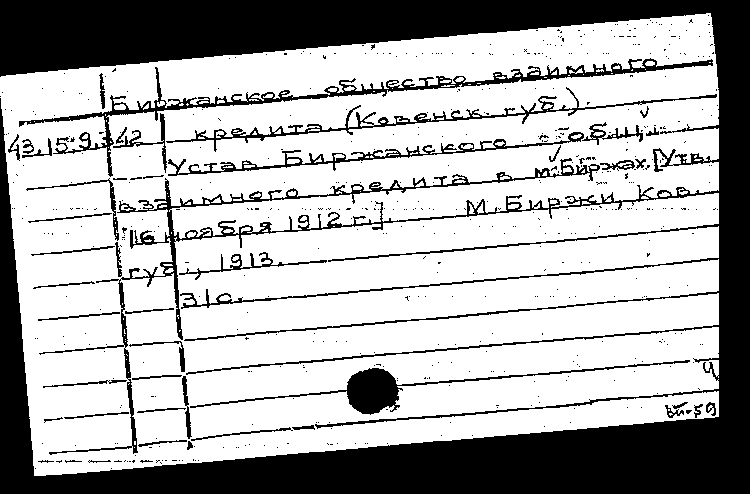 Биржанское общество взаимного
43.15.9.342 кредита. (Ковенск. губ.).
Устав Биржанского общ.
взаимного кредита в м. Биржах. [Утв.
16 ноября 1912 г.]. М. Биржи, Ков.
губ., 1913.
31с.